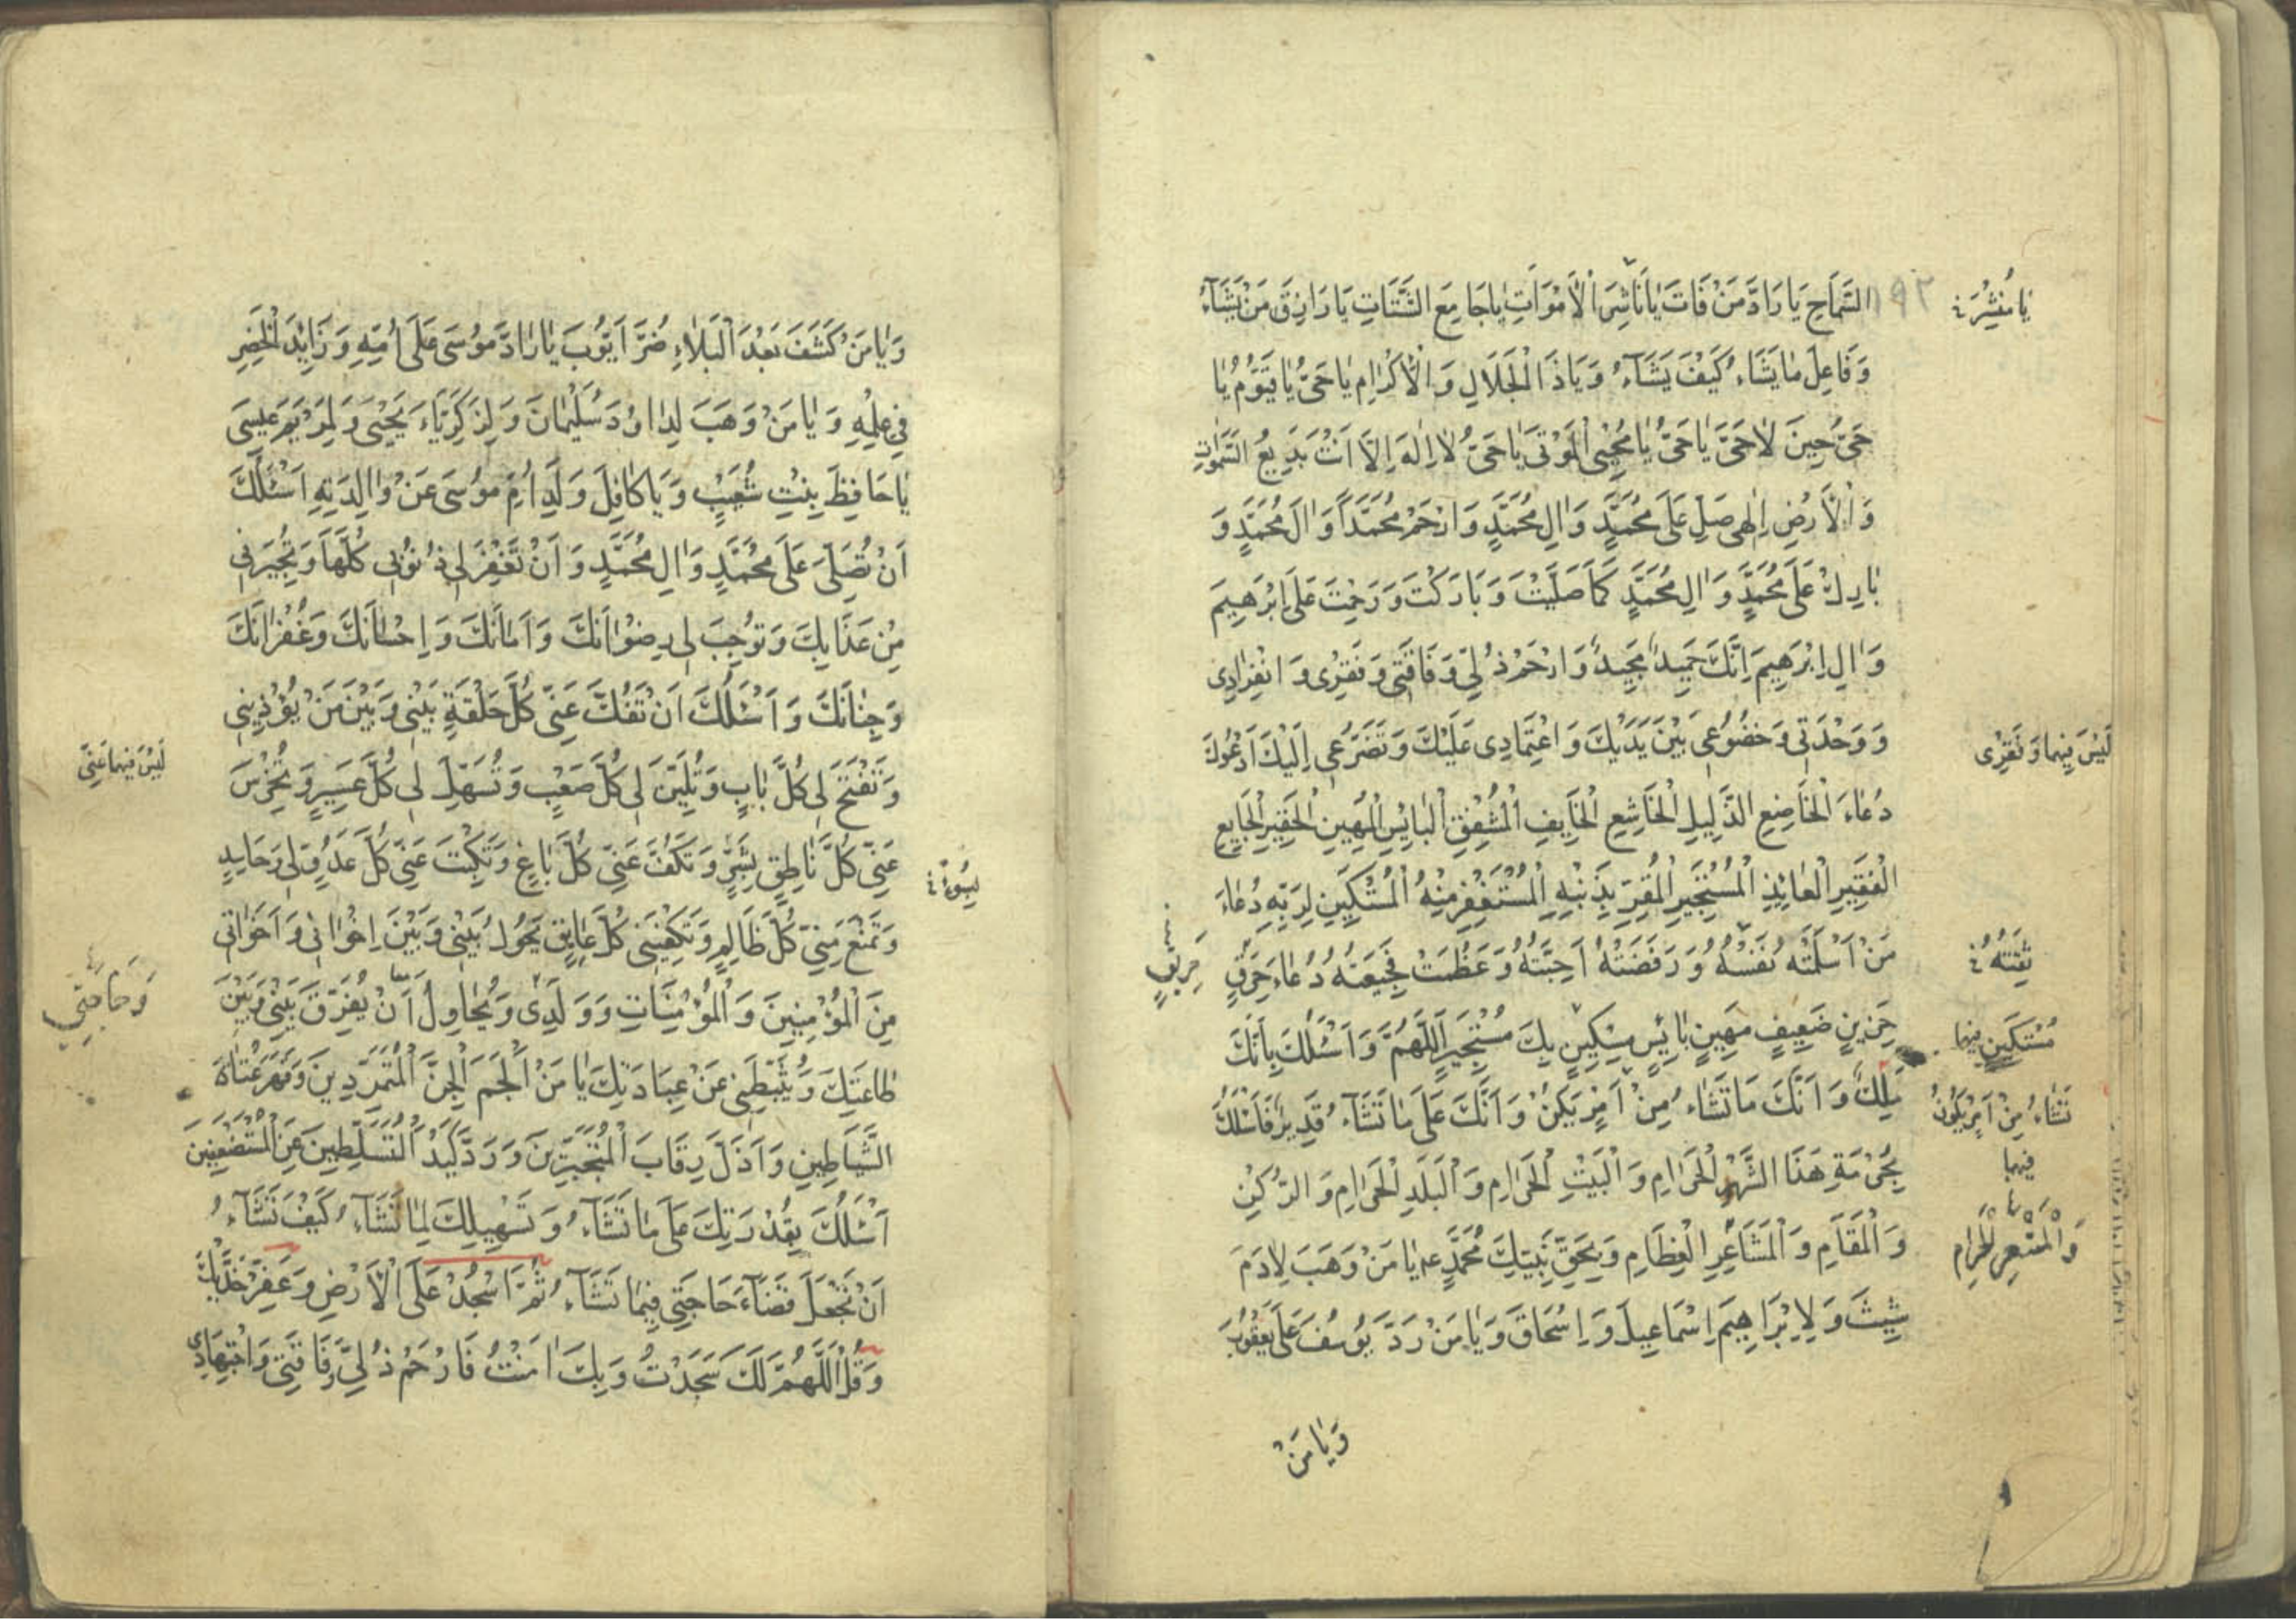 السَّمَاحِ يَا رَادَّ مَنْ فَاتَ يَا نَاشِرَ الْأَمْوَاتِ يَا جَامِعَ الشَّتَاتِ يَا رَازِقَ مَنْ يَشَآءُ
يَا مُنْشِرَ
١٩٢
وَفَاعِلَ مَا يَشَاءُ كَيْفَ يَشَآءُ وَيَاذَا الْجَلَالِ وَالْأِكْرَامِ يَا حَىُّ يَا قَيُّومُ يَا
حَىُّ حِينَ لَا حَىَّ يَا حَىُّ يَا مُحْيِىَ الْمَوْتَى يَا حَىُّ لَا اِلٰهَ اِلَّا اَنْتَ بَدِيعُ السَّمٰوَاتِ
وَالْأَرْضِ اِلٰهِى صَلِّ عَلَى مُحَمَّدٍ وَاٰلِ مُحَمَّدٍ وَارْحَمْ مُحَمَّدًا وَاٰلَ مُحَمَّدٍ وَ
بَارِكْ عَلَى مُحَمَّدٍ وَاٰلِ مُحَمَّدٍ كَمَا صَلَّيْتَ وَبَارَكْتَ وَرَحِمْتَ عَلَى اِبْرَهِيمَ
وَاٰلِ اِبْرَهِيمَ اِنَّكَ حَمِيدٌ مَجِيدٌ وَارْحَمْ ذُلِّى وَفَاقَتِى وَفَقْرِى وَانْفِرَادِى
وَوَحْدَتِى وَخُضُوعِى بَيْنَ يَدَيْكَ وَاعْتِمَادِى عَلَيْكَ وَتَضَرُّعِى اِلَيْكَ اَدْعُوكَ
لَيْسَ فِيهِمَا وَفَقْرِى
دُعَاءَ الْخَاضِعِ الذَّلِيلِ الْخَاشِعِ الْخَايِفِ الْمُشْفِقِ الْبَائِسِ الْمَهِينِ الْحَقِيرِ الْجَايِعِ
الْفَقِيرِ الْعَائِذِ الْمُسْتَجِيرِ الْمُقِرِّ بِذَنْبِهِ الْمُسْتَغْفِرِ مِنْهُ الْمُسْتَكِينِ لِرَبِّهِ دُعَاءَ
مَنْ اَسْلَمَتْهُ نَفْسُهُ وَرَفَضَتْهُ اَحِبَّتُهُ وَعَظُمَتْ فَجِيعَتُهُ دُعَاءَ حَرِقٍ
ثِقَتُهُ
حَرِيقٍ
حَزِينٍ ضَعِيفٍ مَهِينٍ بَائِسٍ مِسْكِينٍ بِكَ مُسْتَجِيرٍ اَللّٰهُمَّ وَاَسْئَلُكَ بِاَنَّكَ
مُسْتَكِينٍ فِيهِمَا
مَلِكٌ وَاَنَّكَ مَا تَشَاءُ مِنْ اَمْرٍ يَكُنْ وَاَنَّكَ عَلَى مَا تَشَآءُ قَدِيرٌ فَاَسْئَلُكَ
تَشَاءُ مِنْ اَمْرٍ يَكُونُ
فِيهِمَا
بِحُرْمَةِ هَذَا الشَّهْرِ الْحَرَامِ وَالْبَيْتِ الْحَرَامِ وَالْبَلَدِ الْحَرَامِ وَالرُّكْنِ
وَالْمَقَامِ وَالْمَشَاعِرِ الْعِظَامِ وَبِحَقِّ نَبِيِّكَ مُحَمَّدٍ عم يَا مَنْ وَهَبَ لِاٰدَمَ
وَالْمَشْعَرِ الْحَرَامِ
شِيثَ وَلِاِبْرَاهِيمَ اِسْمَاعِيلَ وَاِسْحَاقَ وَيَا مَنْ رَدَّ يُوسُفَ عَلَى يَعْقُوبَ
وَيَا مَنْ
وَيَا مَنْ كَشَفَ بَعْدَ الْبَلَاءِ ضُرَّ اَيُّوبَ يَا رَادَّ مُوسَى عَلَى اُمِّهِ وَزَائِدَ الْخَضِرِ
فِى عِلْمِهِ وَيَا مَنْ وَهَبَ لِدَاوُدَ سُلَيْمَانَ وَلِزَكَرِيَّاءَ يَحْيَى وَلِمَرْيَمَ عِيسَى
يَا حَافِظَ بِنْتِ شُعَيْبٍ وَيَا كَافِلَ وَلَدِ اُمِّ مُوسَى عَنْ وَالِدَتِهِ اَسْئَلُكَ
اَنْ تُصَلِّىَ عَلَى مُحَمَّدٍ وَاٰلِ مُحَمَّدٍ وَاَنْ تَغْفِرَ لِى ذُنُوبِى كُلَّهَا وَتُجِيرَنِى
مِنْ عَذَابِكَ وَتُوجِبَ لِى رِضْوَانَكَ وَاَمَانَكَ وَاِحْسَانَكَ وَغُفْرَانَكَ
وَجِنَانَكَ وَاَسْئَلُكَ اَنْ تَفُكَّ عَنِّى كُلَّ حَلْقَةٍ بَيْنِى وَبَيْنَ مَنْ يُؤْذِينِى
لَيْسَ فِيهِمَا عَنِّى
وَتَفْتَحَ لِى كُلَّ بَابٍ وَتُلَيِّنَ لِى كُلَّ صَعْبٍ وَتُسَهِّلَ لِى كُلَّ عَسِيرٍ وَتُخْرِسَ
عَنِّى كُلَّ نَاطِقٍ بِشَرٍّ وَتَكُفَّ عَنِّى كُلَّ بَاغٍ وَتَكْبِتَ عَنِّى كُلَّ عَدُوٍّ لِى وَحَاسِدٍ
بِسُوءٍ
وَتَمْنَعَ مِنِّى كُلَّ ظَالِمٍ وَتَكْفِيَنِى كُلَّ عَايِقٍ يَحُولُ بَيْنِى وَبَيْنَ اِخْوَانِى وَاَخَوَاتِى
وَحَاجَتِى
مِنَ الْمُؤْمِنِينَ وَالْمُؤْمِنَاتِ وَوَلَدِى وَيُحَاوِلُ اَنْ يُفَرِّقَ بَيْنِى وَبَيْنَ
طَاعَتِكَ وَيُثَبِّطَنِى عَنْ عِبَادَتِكَ يَا مَنْ اَلْجَمَ الْجِنَّ الْمُتَمَرِّدِينَ وَقَهَرَ عُتَاةَ
الشَّيَاطِينِ وَاَذَلَّ رِقَابَ الْمُتَجَبِّرِينَ وَرَدَّ كَيْدَ الْمُتَسَلِّطِينَ عَنِ الْمُسْتَضْعَفِينَ
اَسْئَلُكَ بِقُدْرَتِكَ عَلَى مَا تَشَاءُ وَتَسْهِيلِكَ لِمَا تَشَآءُ كَيْفَ تَشَآءُ
اَنْ تَجْعَلَ قَضَآءَ حَاجَتِى فِيمَا تَشَآءُ ثُمَّ اسْجُدْ عَلَى الْأَرْضِ وَعَفِّرْ خَدَّيْكَ
وَقُلْ اَللّٰهُمَّ لَكَ سَجَدْتُ وَبِكَ اٰمَنْتُ فَارْحَمْ ذُلِّى وَفَاقَتِى وَاجْتِهَادِى